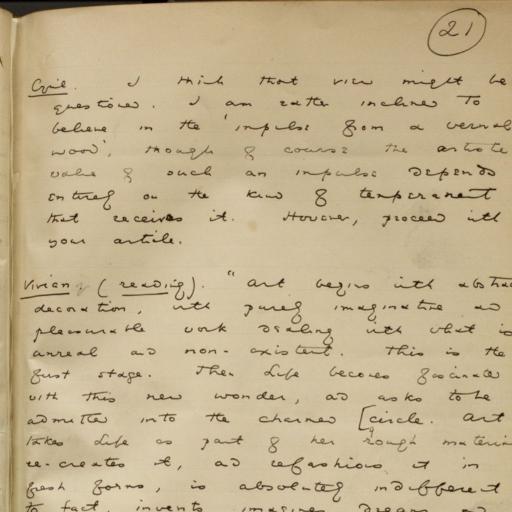 21
Cyril. I think that view might be
questioned. I am rather inclined to
believe in the 'impulse from a vernal
wood', though of course the artistic
value of such an impulse depends
entirely on the kind of temperament
that receives it. However, proceed with
your article.
Vivian. (reading). "Art begins with abstrac
decoration, with purely imaginative and
pleasurable work dealing with what is
unreal and non-existent. This is the
first stage. Then Life becomes fascinated
with this new wonder, and asks to be
admitted into the charmed [circle. Art
takes Life as part of her rough material
re-creates it, and refashions it in
fresh forms, is absolutely indifferent
to fact, invents, imagines, dreams, and